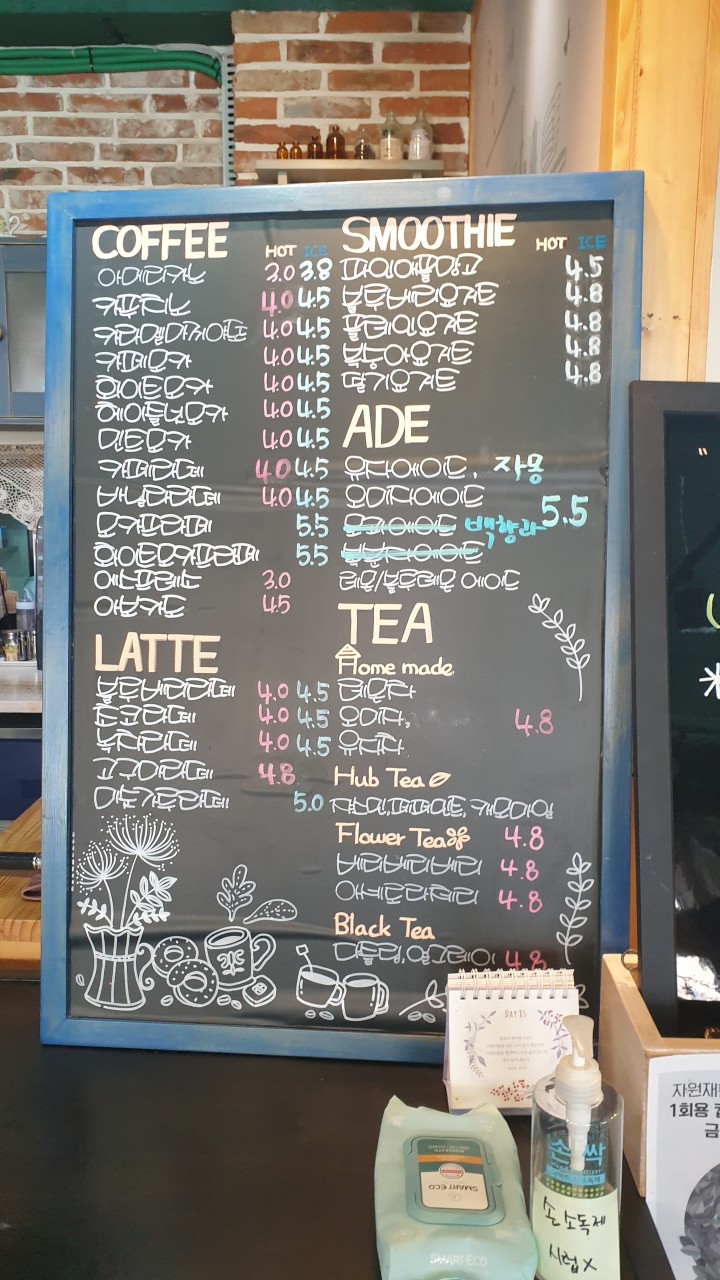 COFFEE HOT ICE
아메리카노 3.0 3.8
카푸치노 4.0 4.5
카라멜마끼아또 4.0 4.5
카페모카 4.0 4.5
화이트모카 4.0 4.5
헤이즐넛모카 4.0 4.5
민트모카 4.0 4.5
카페라떼 4.0 4.5
바닐라라떼 4.0 4.5
모카프라페 5.5
화이트모카프라페 5.5
에스프레소 3.0
아보카도 4.5
LATTE
블루베리라떼 4.0 4.5
토코라떼 4.0 4.5
녹차라떼 4.0 4.5
고구마라떼 4.8
미숫가루라떼 5.0
SMOOTHIE HOT ICE
파인애플망고 4.5
블루베리요거트 4.8
플레인요거트 4.8
복숭아요거트 4.8
딸기요거트 4.8
ADE
유자에이드, 자몽
오미자에이드 5.5
백향과
레몬/블루레몬 에이드
TEA
Home made
레몬차
오미자, 4.8
유자차
Hub Tea
쟈스민,페퍼민트,캐모마일
Flower Tea 4.8
베리베리베리 4.8
아세로라체리 4.8
Black Tea
다즐링,얼그레이 4.8
DAY 85
SMART ECO
SMART ECO
손싹
손소독제
시럽X
자원재
1회용 컵
금